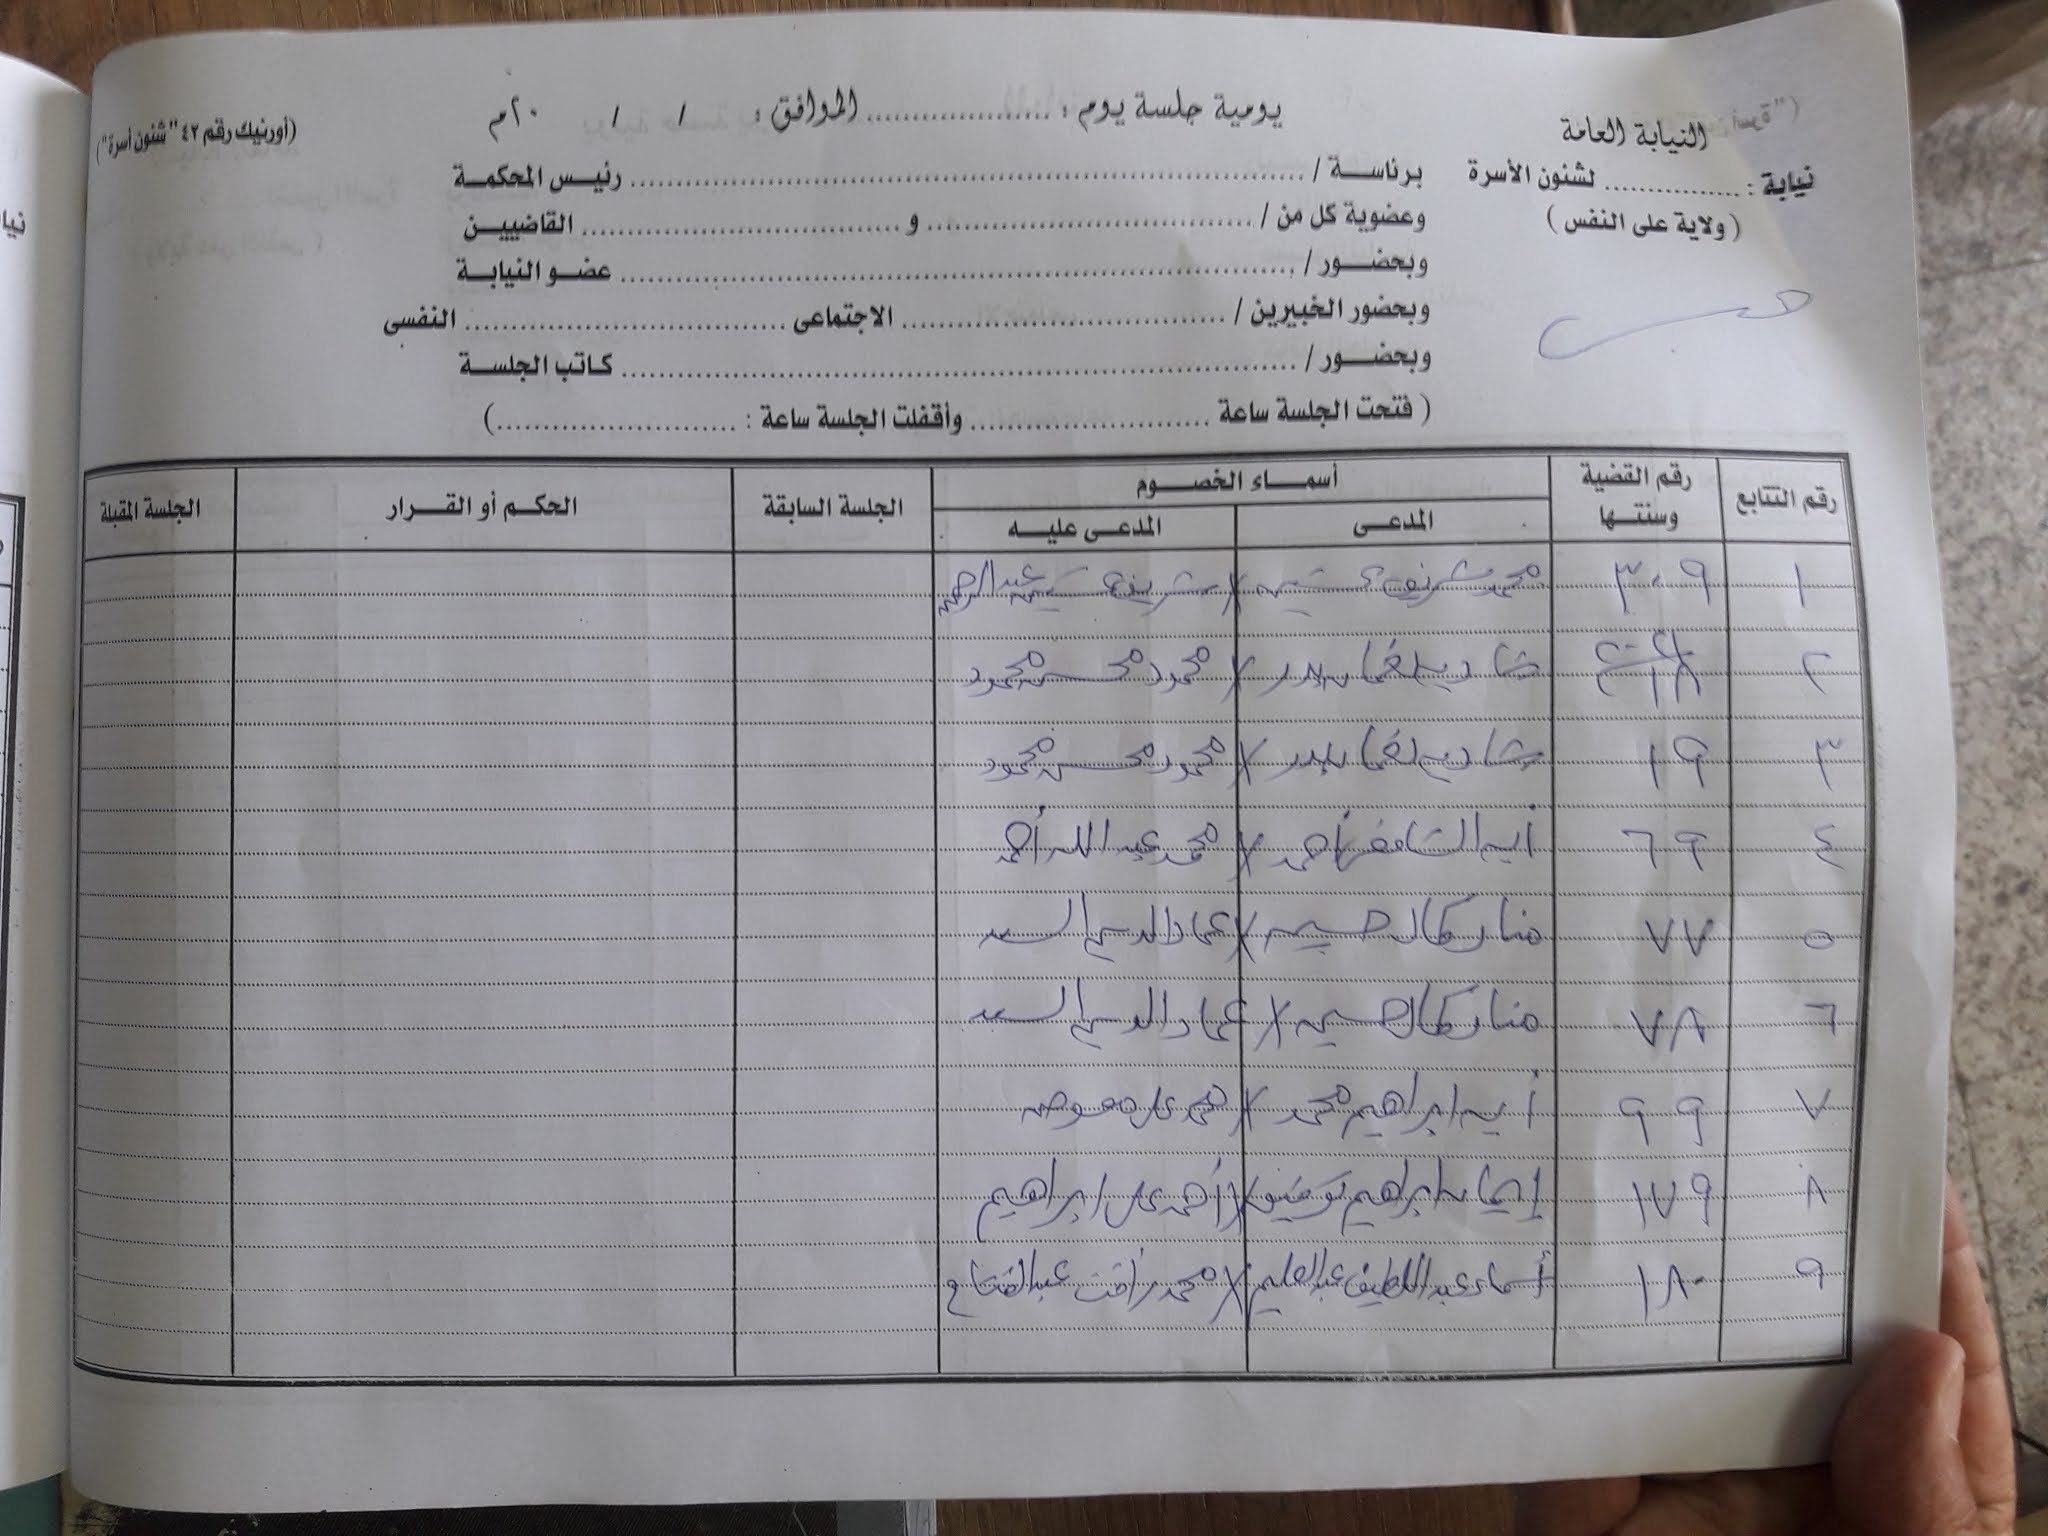 النيابة العامة
نيابة : ............... لشئون الأسرة
( ولاية على النفس )
(أورنيك رقم ٤٢ "شئون أسرة")
يومية جلسة يوم : .................... الموافق : / / ٢٠م
برئاسة / .................... رئيس المحكمة
وعضوية كل من / .................... و .................... القاضيين
وبحضور / .................... عضو النيابة
وبحضور الخبيرين / .................... الاجتماعى .................... النفسى
وبحضور / .................... كاتب الجلسة
( فتحت الجلسة ساعة .................... وأقفلت الجلسة ساعة : ....................)
رقم التتابع رقم القضية وسنتها أسماء الخصوم الجلسة السابقة الحكم أو القرار الجلسة المقبلة
المدعى المدعى عليه
١ ٣٠٩ محمد شريف / شريف عبد الرحمن
٢ بدر / محمود محسن محمود
٣ ١٩ بدر / محمود محسن محمود
٤ ٦٩ أيه أحمد / محمد عبد الله أحمد
٥ ٧٧ منار كمال حسين / عماد الدين السعيد
٦ ٧٨ منار كمال حسين / عماد الدين السعيد
٧ ٩٩ أيه ابراهيم محمد / محمد على معوض
٨ ١٧٩ إيمان ابراهيم توفيق / أحمد على ابراهيم
٩ ١٨٠ أسماء عبد اللطيف عبد العليم / محمد رأفت عبد الفتاح